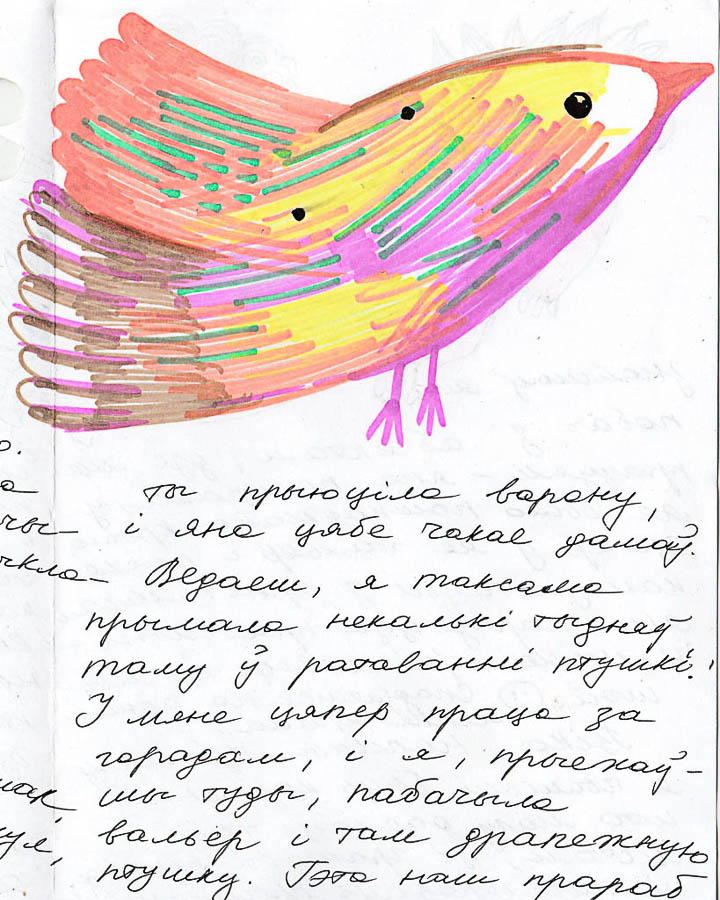 ты прыюціла варону,
і яна цябе чакае дамоў.
Ведаеш, я таксама
прымала некалькі тыдняў
таму ў ратаванні птушкі.
У мяне цяпер праца за
горадам, і я, прыехаў-
шы туды, пабачыла
вальер і там драпежную
птушку. Гэта наш прараб